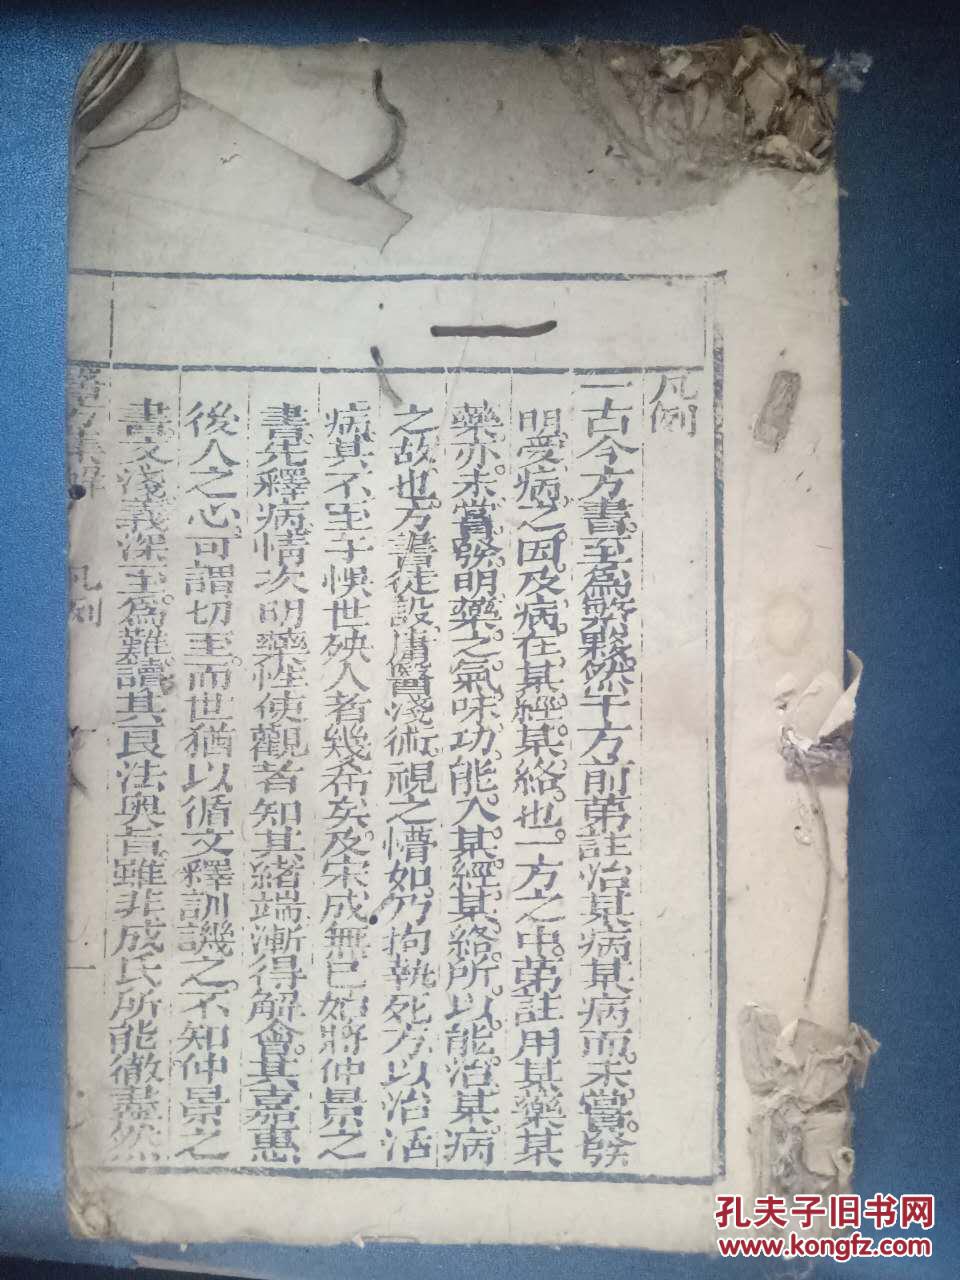 凡例
一古今方書。至爲繁夥。然于方前第註治某病某病。而未嘗發
明受病之因。及病在某經某絡也。一方之中。第註用某藥某
藥。亦未嘗發明藥之氣味功能。入某經某絡。所以能治某病
之故也。方書徒設。庸醫淺術。視之懵如。乃拘執死方以治活
病。其不至于悞世殃人者幾希矣。及宋成無已始將仲景之
書。先釋病情。次明藥性。使觀者知其緒端。漸得解會。其嘉惠
後人之心。可謂切至。而世猶以循文釋訓譏之。不知仲景之
書。文淺義深。至爲難讀。其良法奧旨。雖非成氏所能徹盡。然
醫方集解 凡例 一
一
孔夫子旧书网
www.kongfz.com